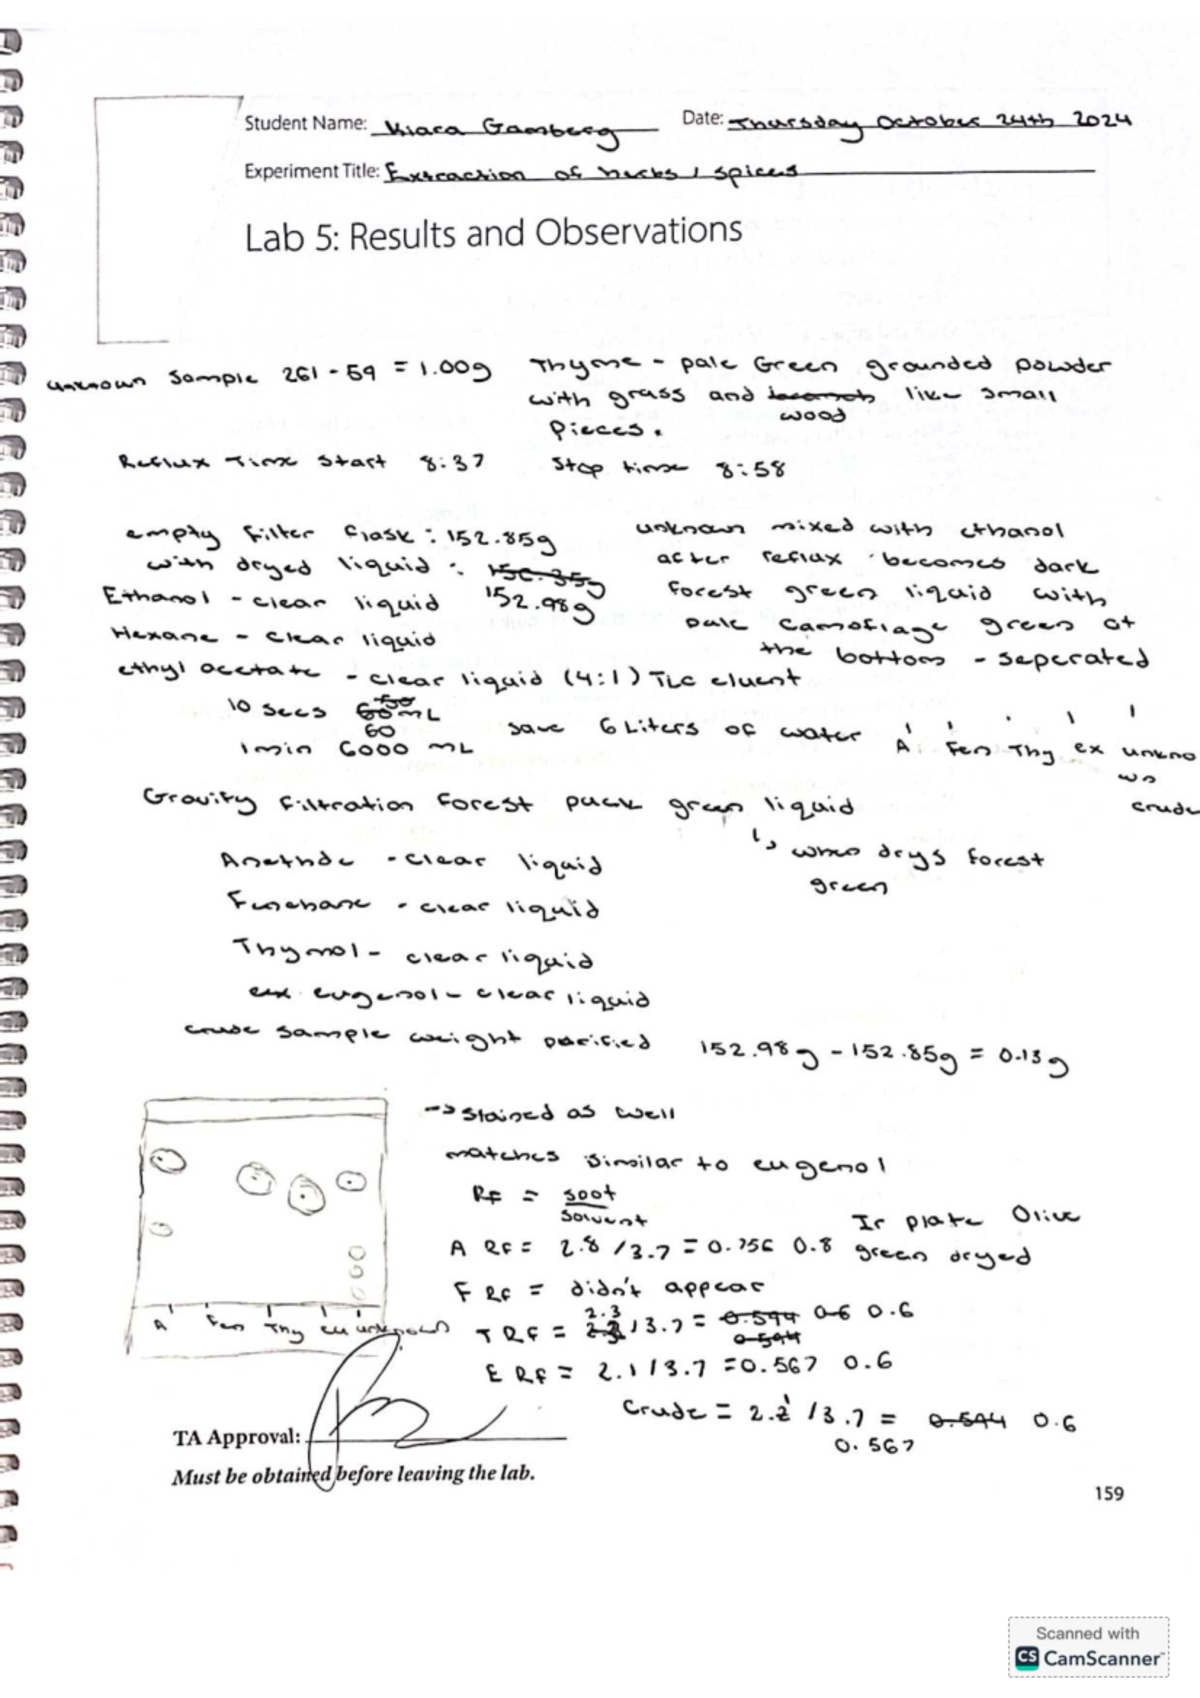 Student Name: Kiara Gamberg Date: Thursday October 24th 2024
Experiment Title: Extraction of herbs / spices
Lab 5: Results and Observations
unknown sample 261-59 = 1.00g Thyme - pale Green grounded powder
with grass and wood like small
pieces.
Reflux Time start 8:37 stop time 8:58
empty filter flask : 152.85g unknown mixed with ethanol
with dryed liquid : 156.35g after reflux becomes dark
Ethanol - clear liquid 152.98g forest green liquid with
Hexane - clear liquid pale camoflage green at
the bottom - seperated
ethyl acetate - clear liquid (4:1) TLC eluent
10 secs 60 mL
60
1 min 6000 mL save 6 Liters of water A Fen Thy ex unkno
wn
crude
Gravity filtration forest green liquid
↳ when drys forest
green
Anethole - clear liquid
Fenchane - clear liquid
Thymol - clear liquid
eugenol - clear liquid
crude sample weight purified 152.98g - 152.85g = 0.13g
-> stained as well
matches similar to eugenol
RF = spot
solvent
Ir plate Olive
green dryed
A RF = 2.8 / 3.7 = 0.756 0.8
F RF = didn't appear
2.3
T RF = 2.2 / 3.7 = 0.594 0.6 0.6
0.594
E RF = 2.1 / 3.7 = 0.567 0.6
Crude = 2.1 / 3.7 = 0.594 0.6
0.567
A Fen Thy eu unknown
TA Approval:
Must be obtained before leaving the lab.
159
Scanned with
CS CamScanner